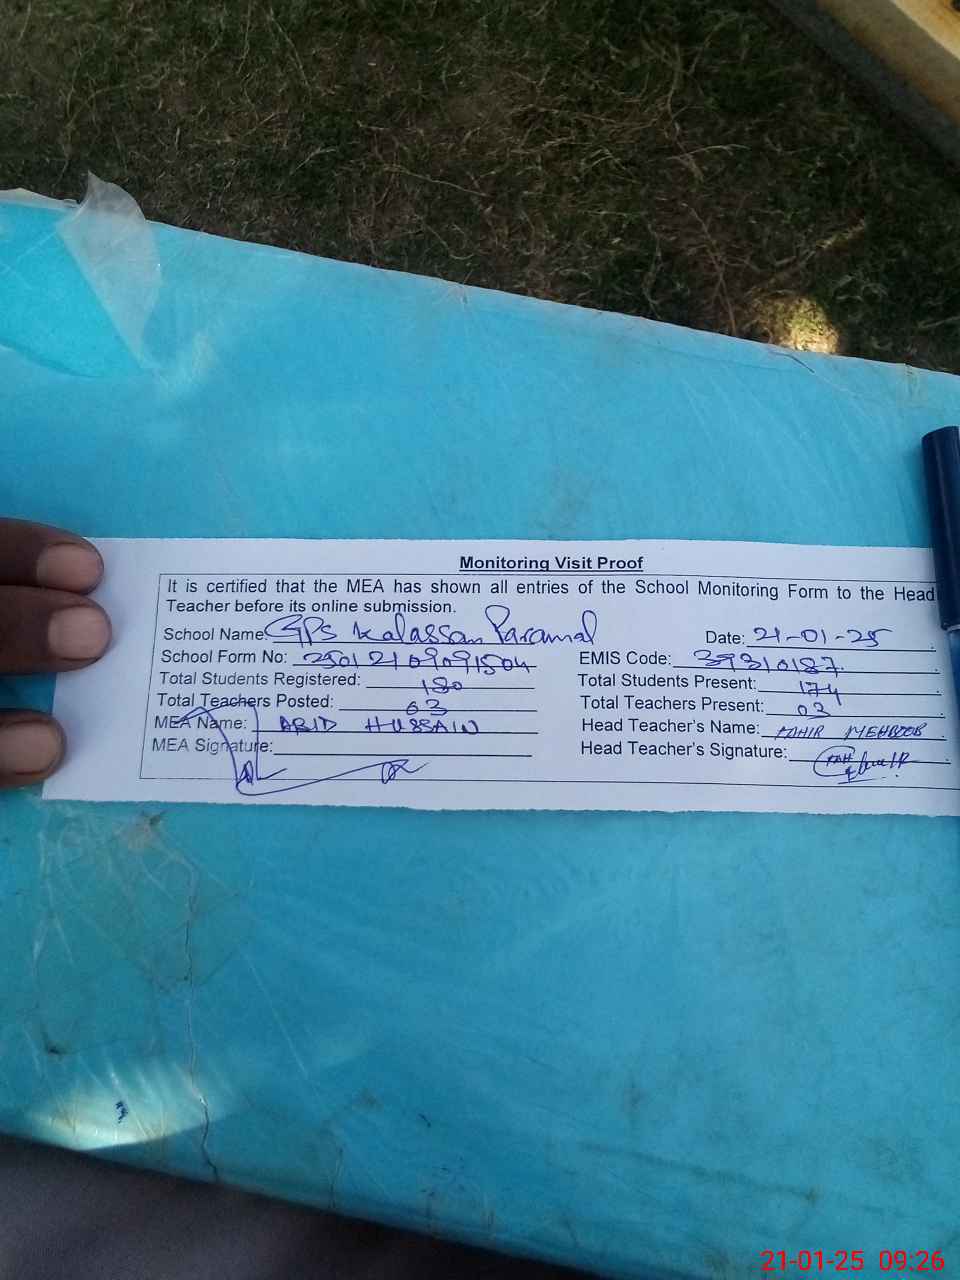 Monitoring Visit Proof
It is certified that the MEA has shown all entries of the School Monitoring Form to the Head
Teacher before its online submission.
School Name: GPS Kalassan Paramal Date: 21-01-25
School Form No: 25012109091504 EMIS Code: 39310187
Total Students Registered: 180 Total Students Present: 174
Total Teachers Posted: 03 Total Teachers Present: 03
MEA Name: ABID HUSSAIN Head Teacher's Name: TAHIR MEHBOOB
MEA Signature: Head Teacher's Signature:
21-01-25 09:26